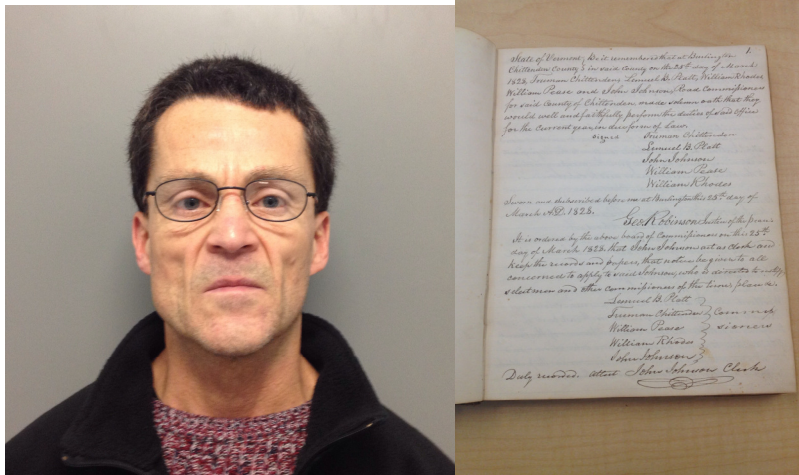 1.
State of Vermont; Be it remembered that at Burlington
Chittenden County & in said County on the 25th day of March
1828. Truman Chittenden, Lemuel B. Platt, William Rhodes
William Pease and John Johnson, Road Commissioners
for said County of Chittenden, made solemn oath that they
would well and faithfully perform the duties of said office
for the current year in due form of Law.
signed Truman Chittenden
Lemuel B. Platt
John Johnson
William Pease
William Rhodes
Sworn and subscribed before me at Burlington this 25th day of
March AD. 1828.
Geo Robinson Justice of the peace
It is ordered by the above board of Commissioners on this 25th
day of March 1828. that John Johnson act as Clerk and
keep the records and papers, that notice be given to all
concerned to apply to said Johnson, who is directed to notify
select men and other commissioners of the time & place &c.
Lemuel B. Platt
Truman Chittenden Commis
William Pease sioners
William Rhodes
John Johnson
Duly recorded. attest John Johnson Clerk